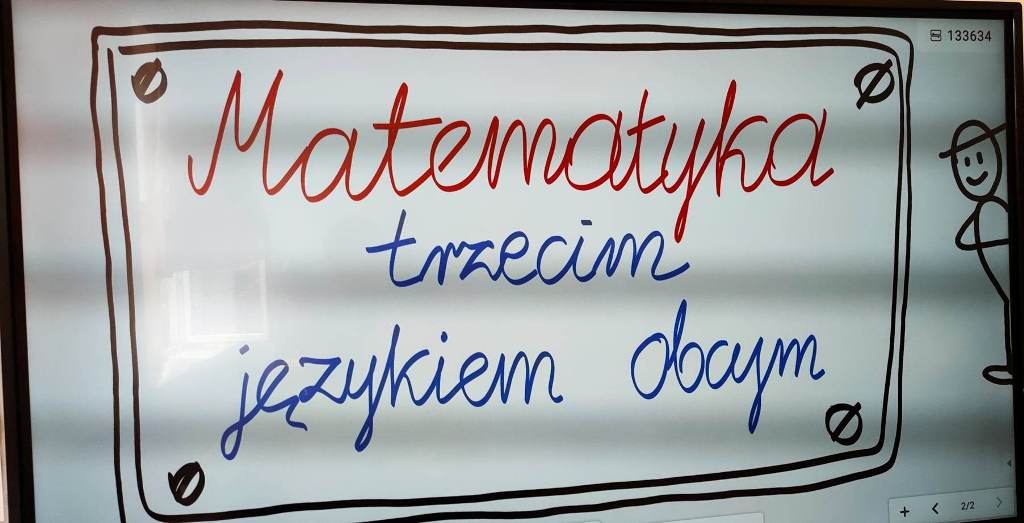 133634
Matematyka
trzecim
językiem obcym
2/2